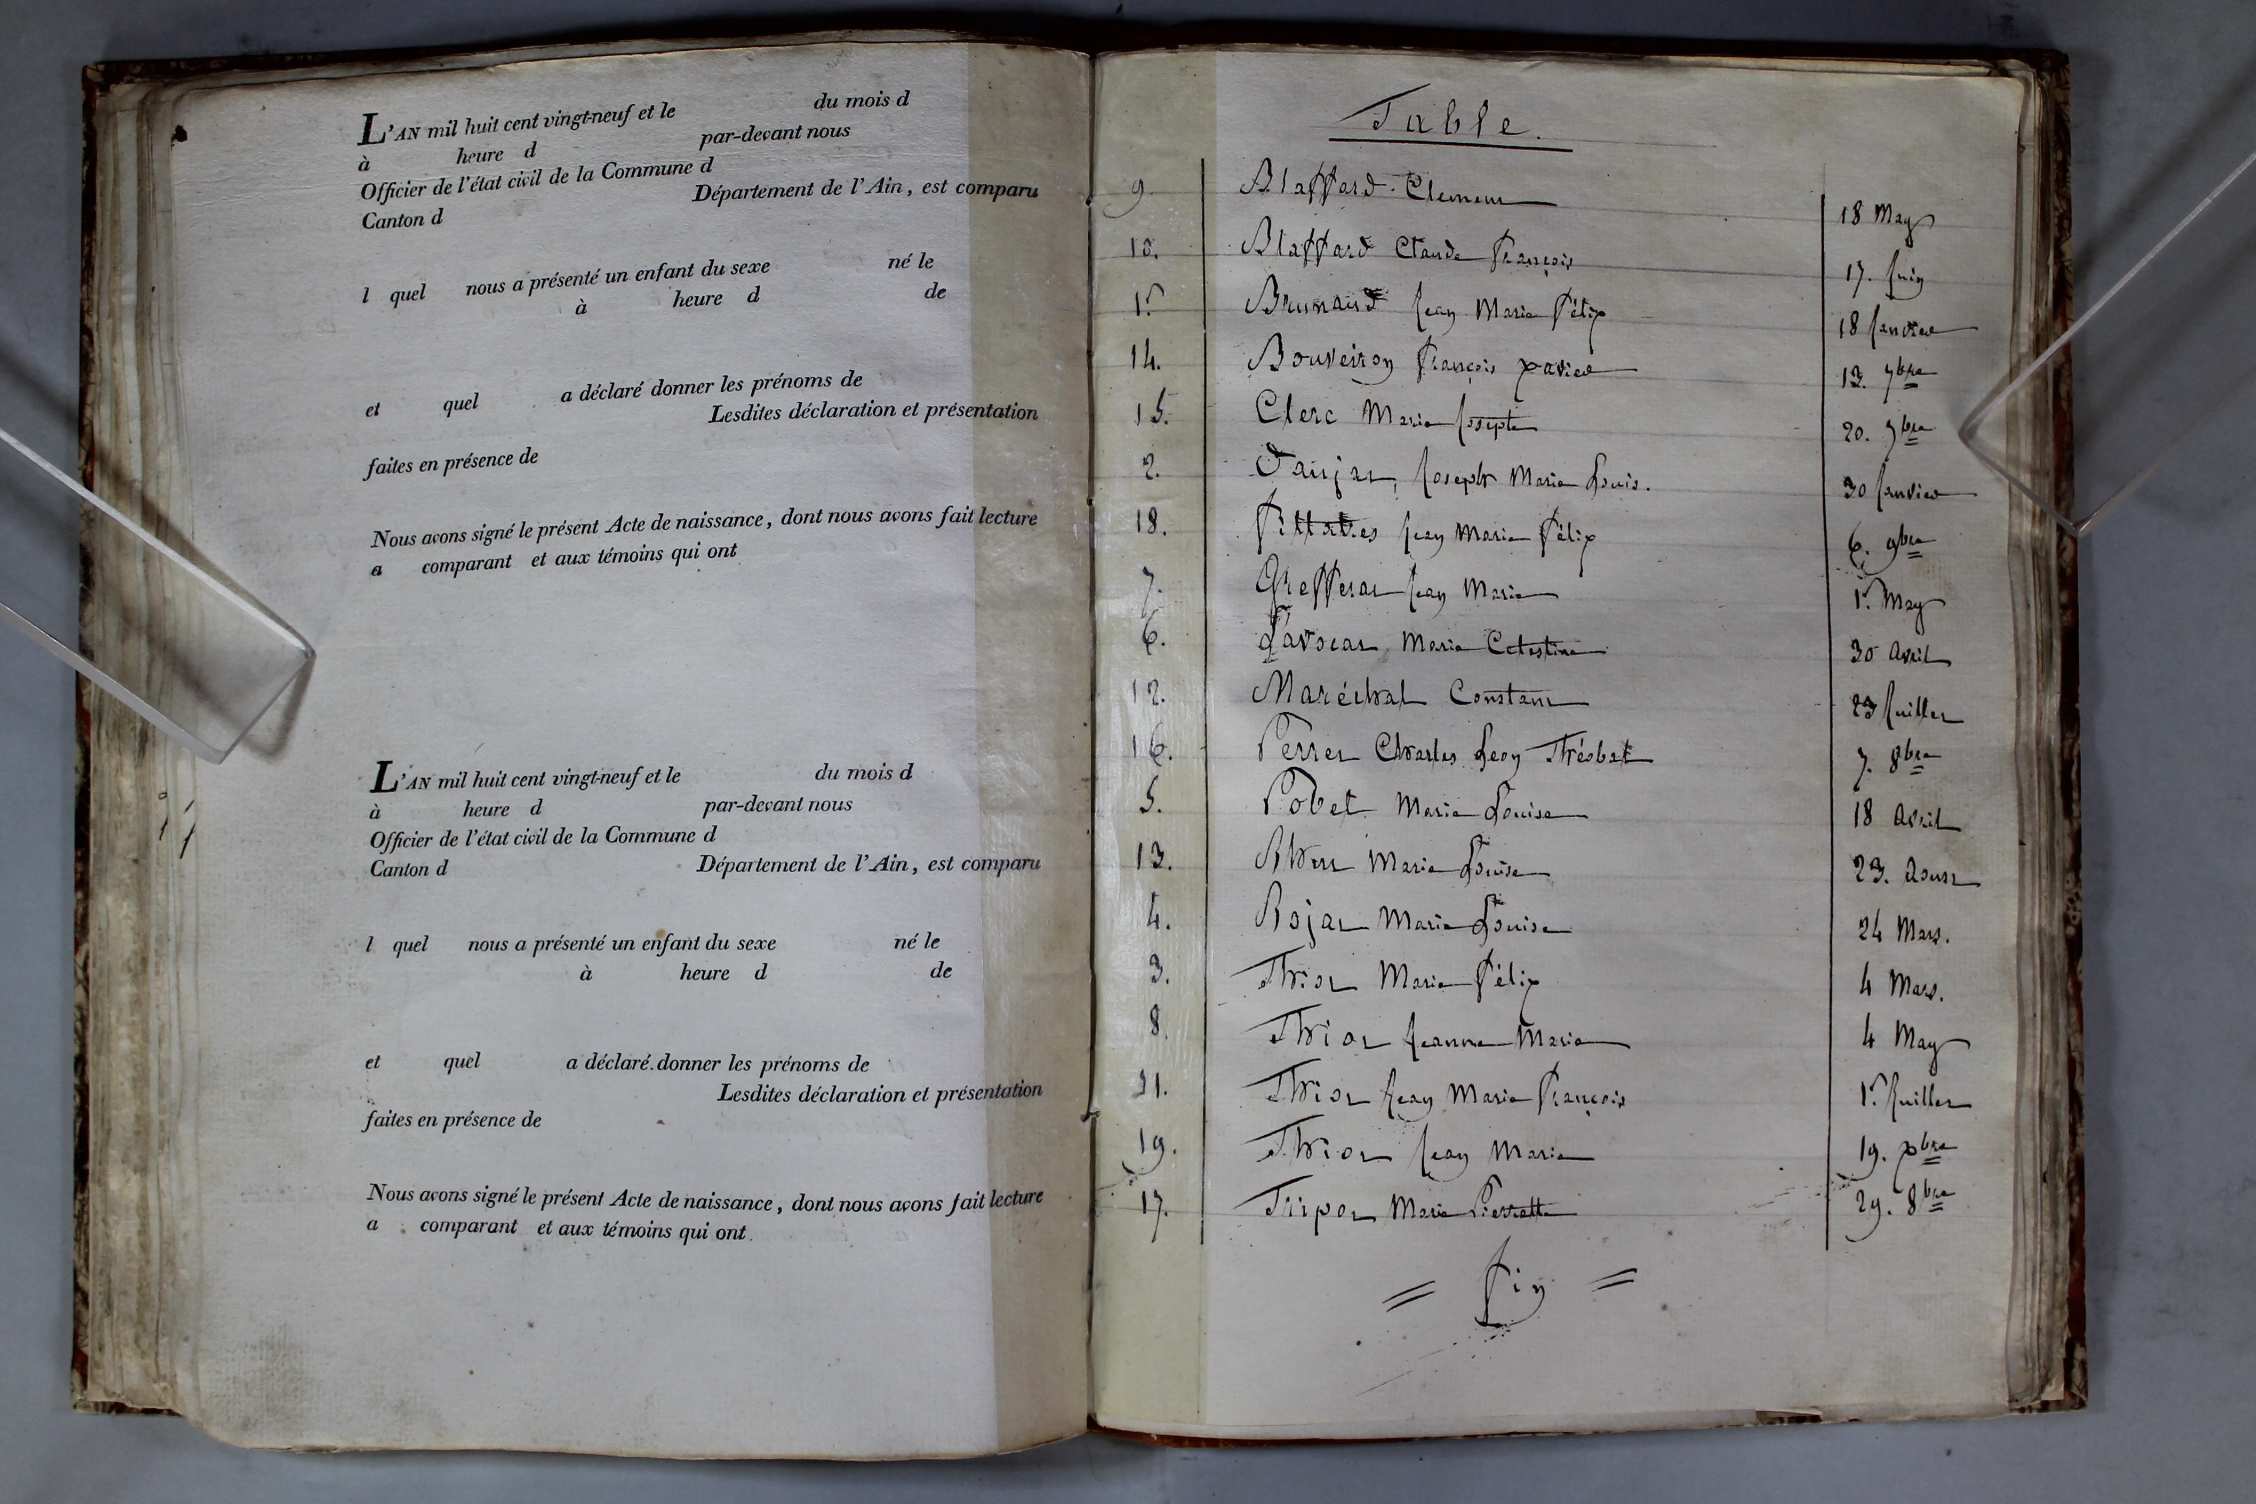 L'AN mil huit cent vingt-neuf et le du mois d
à heure d par-devant nous
Officier de l'état civil de la Commune d
Canton d Département de l'Ain, est comparu
l quel nous a présenté un enfant du sexe né le
à heure d de
et quel a déclaré donner les prénoms de
Lesdites déclaration et présentation
faites en présence de
Nous avons signé le présent Acte de naissance, dont nous avons fait lecture
a comparant et aux témoins qui ont
L'AN mil huit cent vingt-neuf et le du mois d
à heure d par-devant nous
Officier de l'état civil de la Commune d
Canton d Département de l'Ain, est comparu
l quel nous a présenté un enfant du sexe né le
à heure d de
et quel a déclaré donner les prénoms de
Lesdites déclaration et présentation
faites en présence de
Nous avons signé le présent Acte de naissance, dont nous avons fait lecture
a comparant et aux témoins qui ont
Table.
9. Blaffard Clement 18 May
10. Blaffard Claude François 17. Juin
1.r Brunaud Jean Marie Félix 18 Janvier
14. Bouveiron François xavier 13. 7bre
15. Clerc Marie Josepte 20. 7bre
2. Joseph Marie Louis. 30 Janvier
18. Jean Marie Félix 6. 9bre
7. Grefferat Jean Marie 1.r May
6. Lavocat Marie Celestine 30 avril
12. Maréchal Constant 23 Juillet
16. Perret Charles Leon Théobal 7. 8bre
5. Pobel Marie Louise 18 avril
13. Marie Louise 23. Aoust
4. Rojat Marie Louise 24 Mars.
3. Thiot Marie Félix 4 Mars.
8. Thiot Jeanne Marie 4 May
11. Thiot Jean Marie François 1.r Juillet
19. Thiot Jean Marie 19. xbre
17. Tripot Marie Pierrette 29. 8bre
= fin =